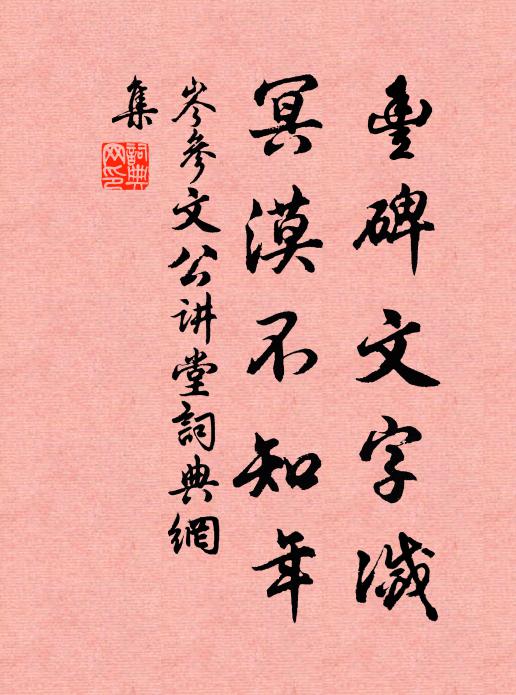 豊碑文字滅
冥漠不知年
岑參文公讲堂詞典網
集
詞典
网印